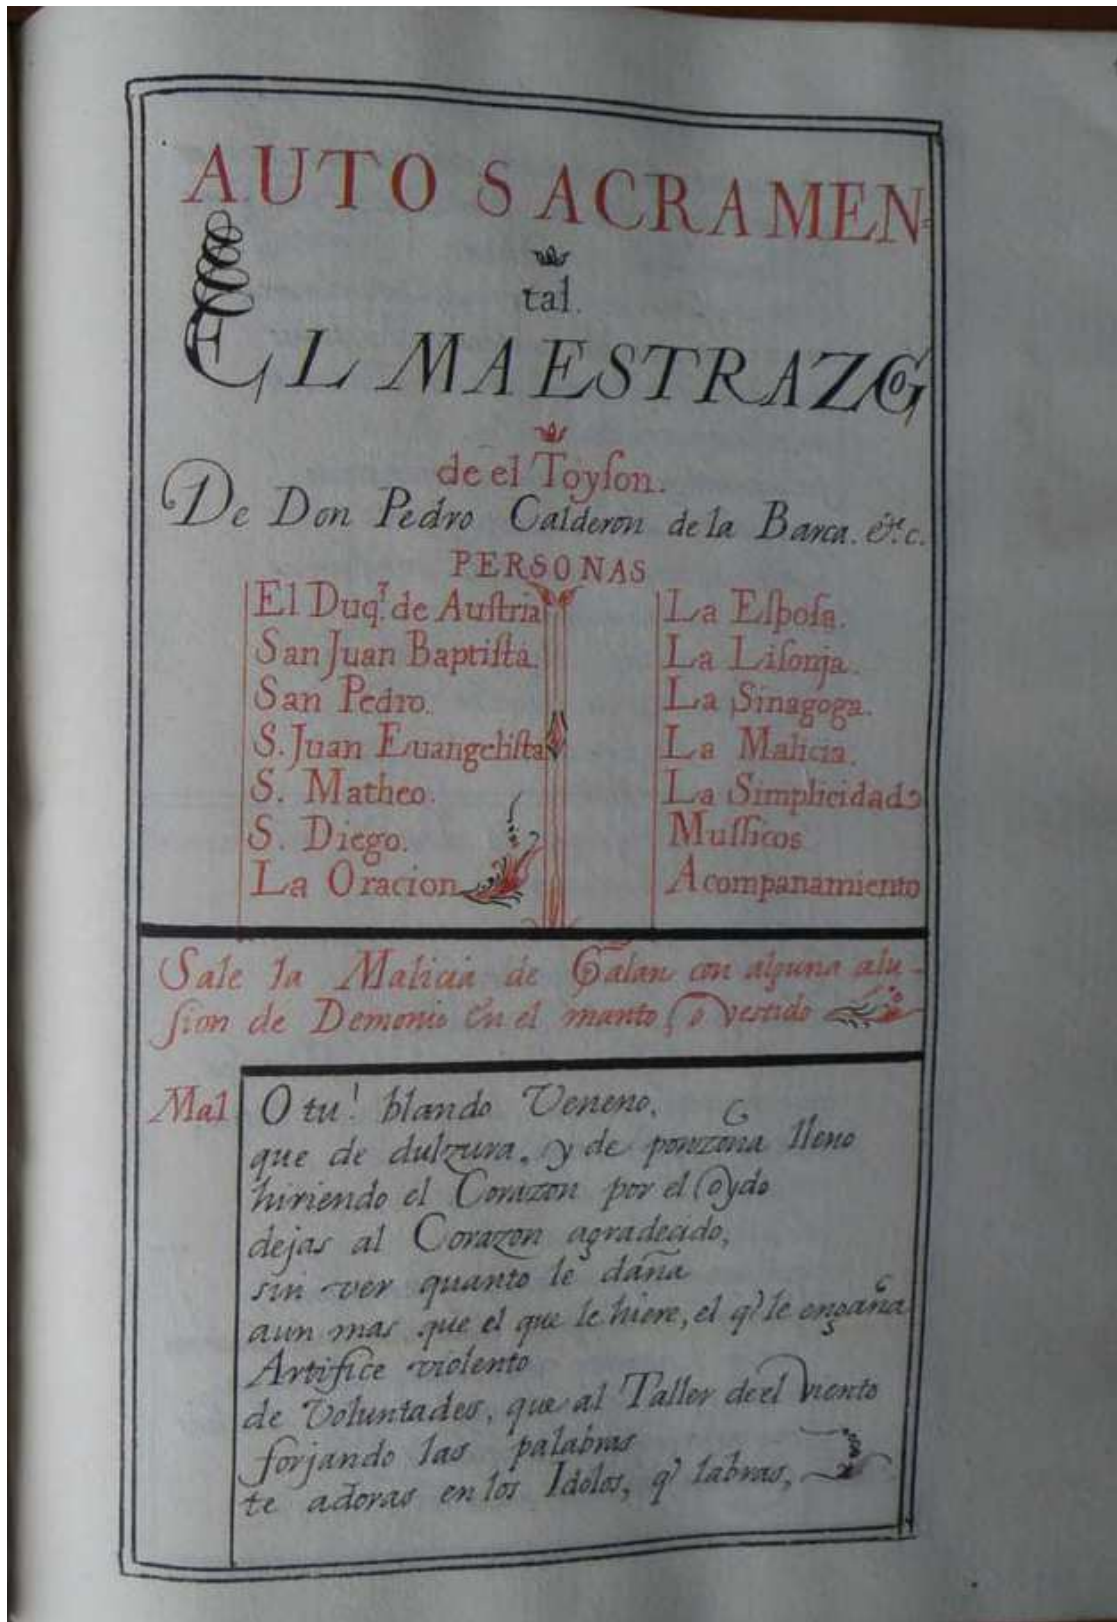 AUTO SACRAMEN=
tal.
EL MAESTRAZGO
de el Toyſon.
De Don Pedro Calderon de la Barca. &c.
PERSONAS
El Duq.e de Auſtria
San Juan Baptiſta
San Pedro.
S. Juan Euangeliſta
S. Matheo.
S. Diego.
La Oracion
La Eſpoſa.
La Liſonja.
La Sinagoga.
La Malicia.
La Simplicidad
Muſſicos
Acompanamiento
Sale la Malicia de Galan con alguna alu-
ſion de Demonio en el manto, o vestido
Mal O tu! blando Veneno,
que de dulzura, y de ponzoña lleno
hiriendo el Corazon por el oydo
dejas al Corazon agradecido,
sin ver quanto le daña
aun mas que el que le hiere, el q.e le engaña
Artifice violento
de Voluntades, que al Taller de el viento
forjando las palabras
te adoras en los Idolos, q.e labras,